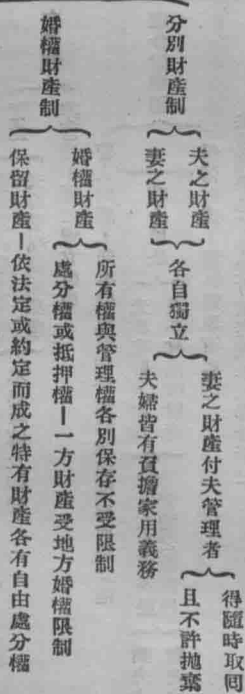 分別財產制
夫之財產
妻之財產
各自獨立
妻之財產付夫管理者
得隨時取回
且不許拋棄
夫婦皆有負擔家用義務
婚權財產制
婚權財產
所有權與管理權各別保存不受限制
處分權或抵押權－一方財產受地方婚權限制
保留財產－依法定或約定而成之特有財產各有自由處分權